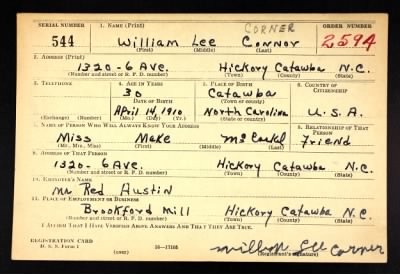 SERIAL NUMBER 1. NAME (Print) CORNER ORDER NUMBER
544 William Lee Connor 2594
(First) (Middle) (Last)
2. ADDRESS (Print)
1320-6 Ave. Hickory Catawba N.C.
(Number and street or R. F. D. number) (Town) (County) (State)
3. TELEPHONE 4. AGE IN YEARS 5. PLACE OF BIRTH 6. COUNTRY OF CITIZENSHIP
30 Catawba
DATE OF BIRTH (Town or county)
April 14 1910 North Carolina U.S.A.
(Exchange) (Number) (Mo.) (Day) (Yr.) (State or country)
7. NAME OF PERSON WHO WILL ALWAYS KNOW YOUR ADDRESS 8. RELATIONSHIP OF THAT PERSON
Miss Make Friend
(Mr., Mrs., Miss) (First) (Middle) (Last)
9. ADDRESS OF THAT PERSON
1320-6 Ave. Hickory Catawba N.C.
(Number and street or R. F. D. number) (Town) (County) (State)
10. EMPLOYER'S NAME
Mr Red Austin
11. PLACE OF EMPLOYMENT OR BUSINESS
Brookford Mill Hickory Catawba N.C.
(Number and street or R. F. D. number) (Town) (County) (State)
I AFFIRM THAT I HAVE VERIFIED ABOVE ANSWERS AND THAT THEY ARE TRUE.
REGISTRATION CARD
D. S. S. Form 1 (over) 16—17105 Corner
(Registrant's signature)